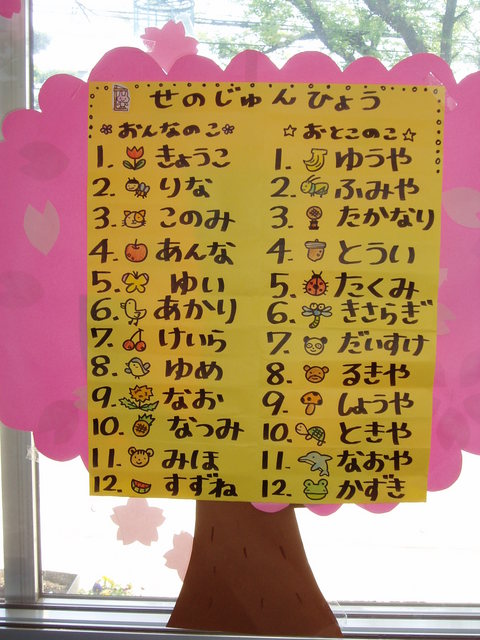 せのじゅんひょう
おんなのこ
1. きょうこ
2. りな
3. このみ
4. あんな
5. ゆい
6. あかり
7. けいら
8. ゆめ
9. なお
10. なつみ
11. みほ
12. すずね
☆おとこのこ☆
1. ゆうや
2. ふみや
3. たかなり
4. とうい
5. たくみ
6. きさらぎ
7. だいすけ
8. るきや
9. しょうや
10. ときや
11. なおや
12. かずき